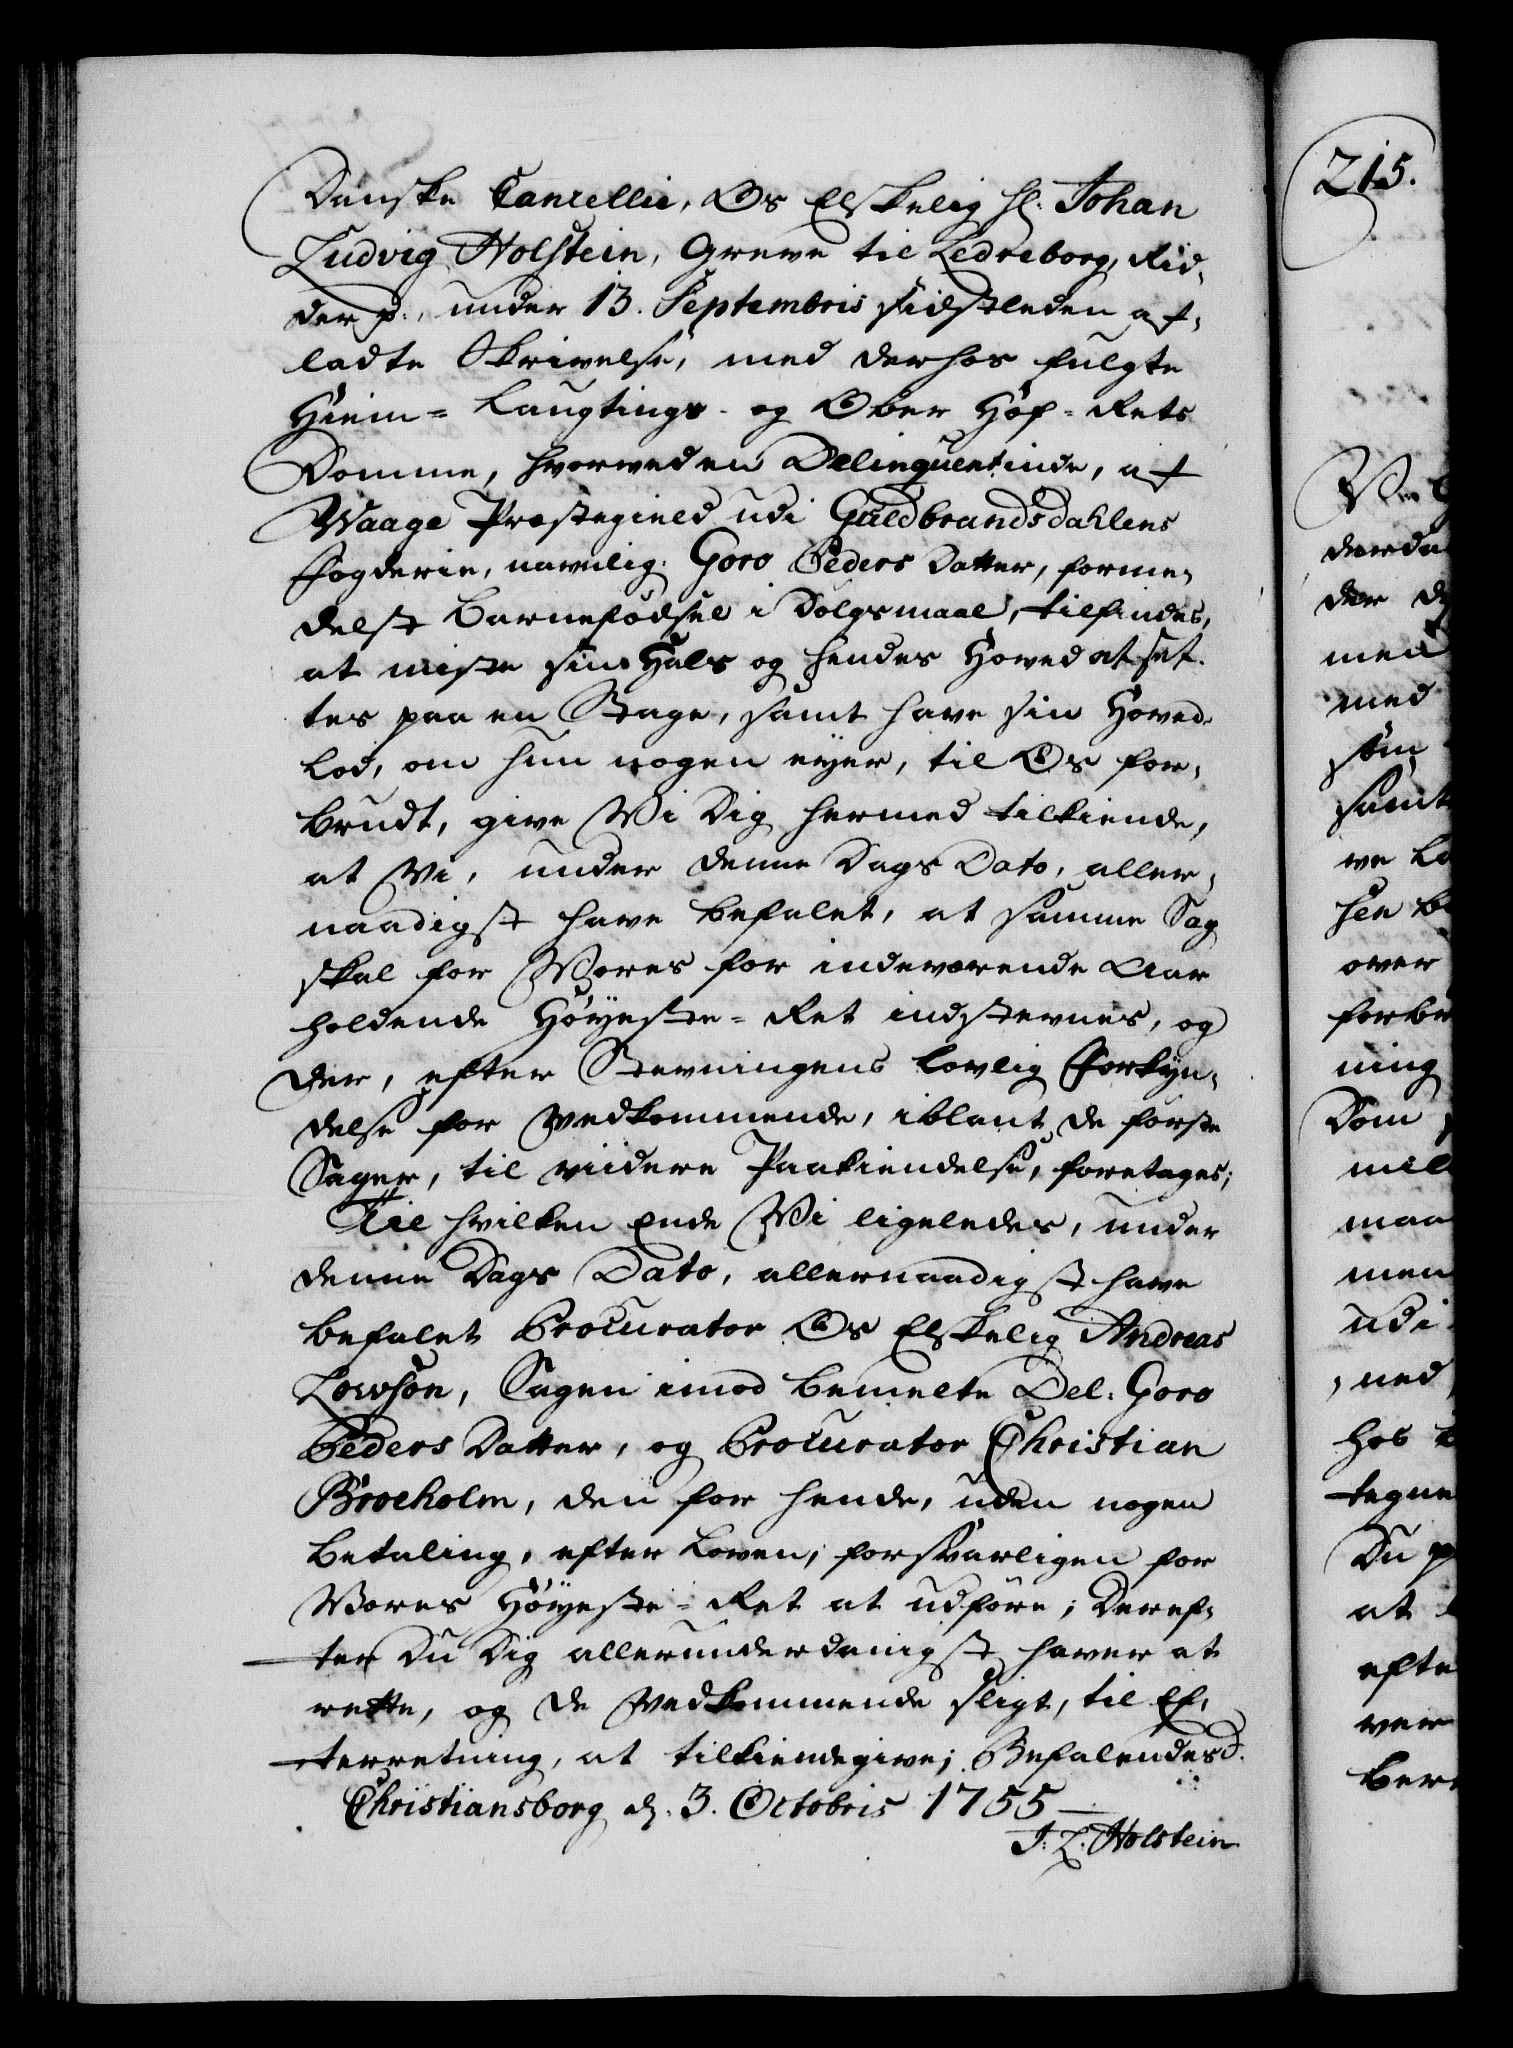 Danske Cancellie, Os Elskelig Hr. Johan
Ludvig Holstein, Greve til Ledreborg, Rid-
der p., under 13. Septembris sidstleden af-
ladte Skrivelse, med derhos fulgte
Hiem- Laugtings- og Ober Hof-Rets
Domme, hvorved en Delinquentinde, af
Waage Præstegield udi Guldbrandsdahlens
Fogderie, navnlig Goro Peders Datter, forme-
delst Barnefödsel i Dölgsmaal, tilfindes,
at miste sin Hals og hendes Hoved at set-
tes paa en Stage, samt have sin Hoved-
lod, om hun nogen eyer, til Os for-
brudt, give Vi Dig hermed tilkiende,
at Vi, under denne Dags Dato, aller-
naadigst have befalet, at samme Sag
skal for Vores for indeværende Aar
holdende Höyeste-Ret indstevnes, og
der, efter Stevningens lovlig Forkyn-
delse for Vedkommende, iblant de förste
Sager, til viidere Paakiendelse, foretages;
Til hvilken Ende Vi ligeledes, under
denne Dags Dato, allernaadigst have
befalet Procurator Os Elskelig Andreas
Lowson, Sagen imod bemelte Del: Goro
Peders Datter, og Procurator Christian
Broeholm, den for hende, uden nogen
Betaling, efter Loven, forsvarligen for
Vores Höyeste-Ret at udföre; Deref-
ter Du Dig allerunderdanigst haver at
rette, og de Vedkommende sligt, til Ef-
terretning, at tilkiendegive; Befalendes d.
Christiansborg d. 3. Octobris 1755
J. L. Holstein
215.
men
med
samt
over
ning
Dom
maa
men
udi
hos
Du
at